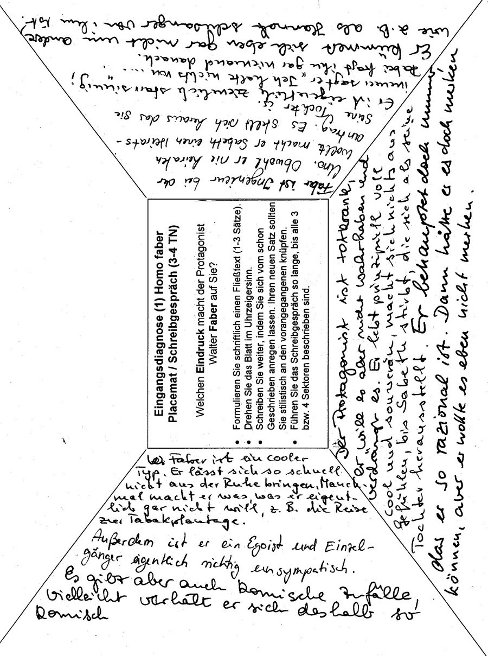 Eingangsdiagnose (1) Homo faber
Placemat / Schreibgespräch (3-4 TN)
Welchen Eindruck macht der Protagonist
Walter Faber auf Sie?
• Formulieren Sie schriftlich einen Fließtext (1-3 Sätze).
• Drehen Sie das Blatt im Uhrzeigersinn.
• Schreiben Sie weiter, indem Sie sich vom schon
Geschrieben anregen lassen. Ihren neuen Satz sollten
Sie stilistisch an den vorangegangenen knüpfen.
• Führen Sie das Schreibgespräch so lange, bis alle 3
bzw. 4 Sektoren beschrieben sind.
Faber ist Ingenieur bei der
Uno. Obwohl er nie heiraten
wollte macht er Sabeth einen Heirats-
antrag. Es stellt sich heraus das sie
seine Tochter ist.
Er ist eigentlich ziemlich starrsinnig;
immer sagt er „Ich hatte nichts von ...."
Dabei fragt ihn gar niemand danach.
Er kümmert sich eben gar nicht um andere,
wie z.B. als Hannah schwanger von ihm ist.
Der Protagonist ist totkrank,
Er will es aber nicht wahrhaben und
verdrängt es. Er lebt prinzipiell voll
cool und souverän, macht sich nichts aus
Gefühlen, bis Sabeth stirbt, die sich als seine
Tochter herausstellt. Er behauptet doch immer
das er so razional ist. Dann hätte er es doch merken
können, aber er wollte es eben nicht merken.
Faber ist ein cooler
Typ. Er lässt sich so schnell
nicht aus der Ruhe bringen, Manch-
mal macht er was, was er eigent-
lich gar nicht will, z.B. die Reise
zur Tabakplantage.
Außerdem ist er ein Egoist und Einzel-
gänger eigentlich richtig unsympatisch.
Es gibt aber auch komische Zufälle,
vielleicht verhält er sich deshalb so
komisch